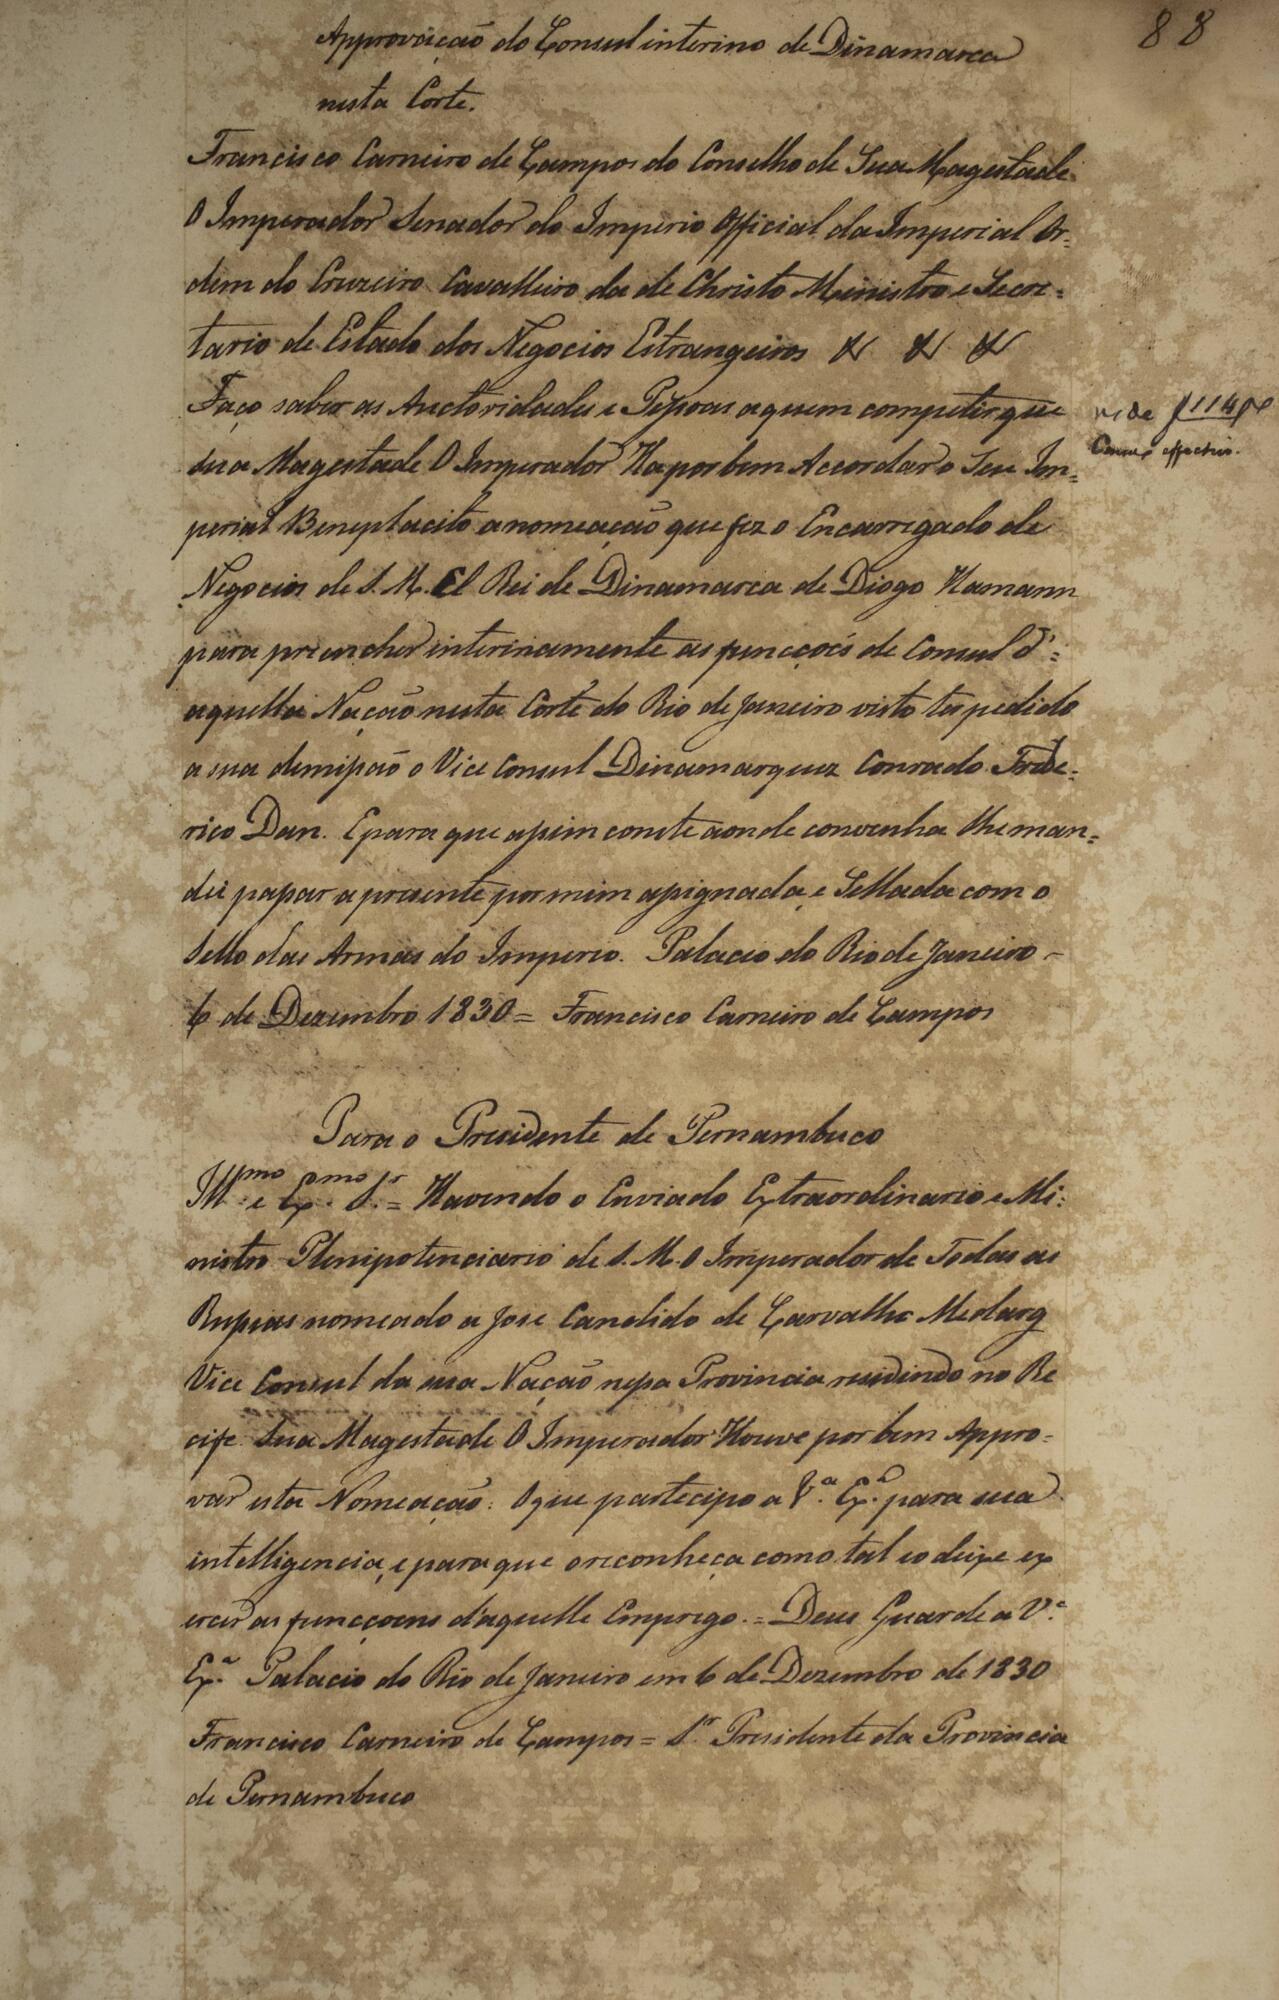 88
Approvação do Consul interino de Dinamarca
nesta Corte.
Francisco Carneiro de Campos do Conselho de Sua Magestade
O Imperador Senador do Imperio Official da Imperial Or=
dem do Cruzeiro Cavalleiro da de Christo Ministro e Secre=
tario de Estado dos Negocios Estrangeiros & & &
Faço saber as Auctoridades e Pessoas a quem competir que
Sua Magestade O Imperador Ha por bem Accordar o Seu Im=
perial Beneplacito a nomeação que fez o Encarregado de
Negocios de S. M. El Rei de Dinamarca de Diogo Hamann
para preencher interinamente as funcçoês de Consul d'=
aquella Nação nesta Corte do Rio de Janeiro visto ter pedido
a sua demissão o Vice Consul Dinamarquez Conrado Frede=
rico Dan. E para que assim conste aonde convenha lhe man=
dei passar a presente por mim assignada, e Sellada com o
Sello das Armas do Imperio. Palacio do Rio de Janeiro
6 de Dezembro 1830 = Francisco Carneiro de Campos
vide f 114
Consul effectivo.
Para o Presidente de Pernambuco
Illmo e Exmo Sr = Havendo o Enviado Extraordinario e Mi=
nistro Plenipotenciario de S. M. O Imperador de Todas as
Russias nomeado a Jose Candido de Carvalho
Vice Consul da sua Nação nessa Provincia residindo no Re
cife Sua Magestade O Imperador Houve por bem Appro=
var esta Nomeação. O que partecipo a V.a Ex.a para sua
intelligencia, e para que o reconheça como tal e o deixe ex
ercer as funcçoens d'aquelle Emprego. = Deus Guarde a V.a
Ex.a Palacio do Rio de Janeiro em 6 de Dezembro de 1830
Francisco Carneiro de Campos = Sr. Presidente da Provincia
de Pernambuco